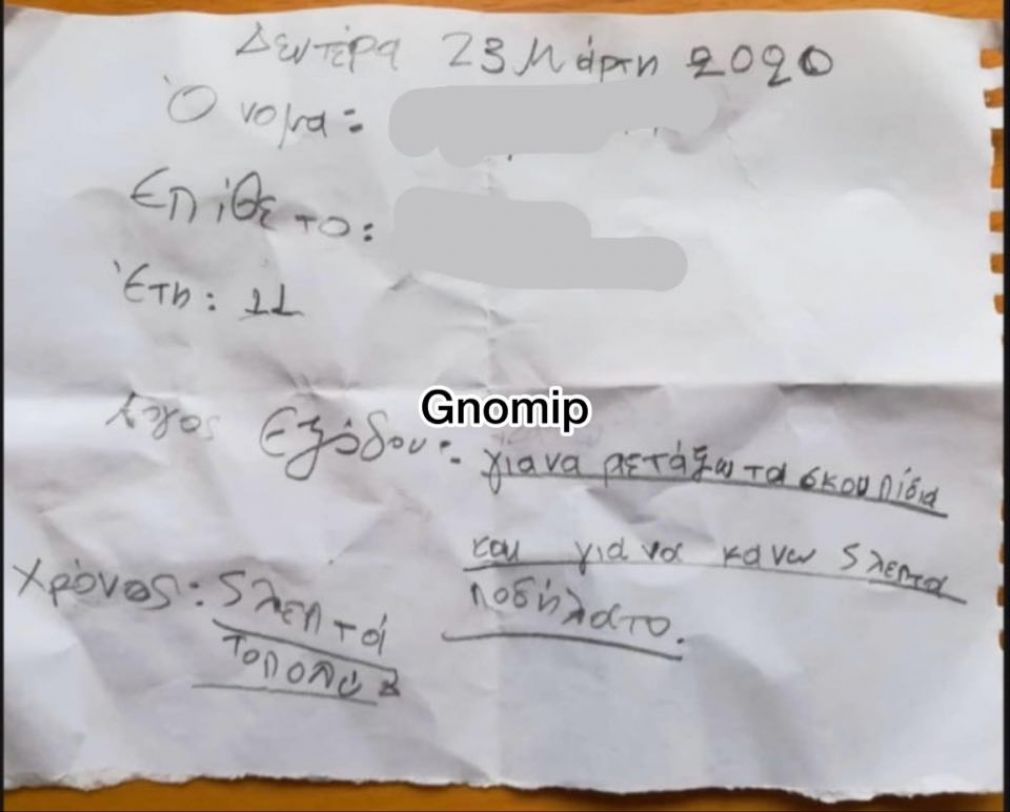 Δευτέρα 23 Μάρτη 2020
Όνομα:
Επίθετο:
Έτη: 11
Λγος Εξόδου: για να πετάξω τα σκουπίδια
και για να κανω 5 λεπτα
ποδήλατο.
Χρόνος: 5 λεπτά
το πολύ
Gnomip